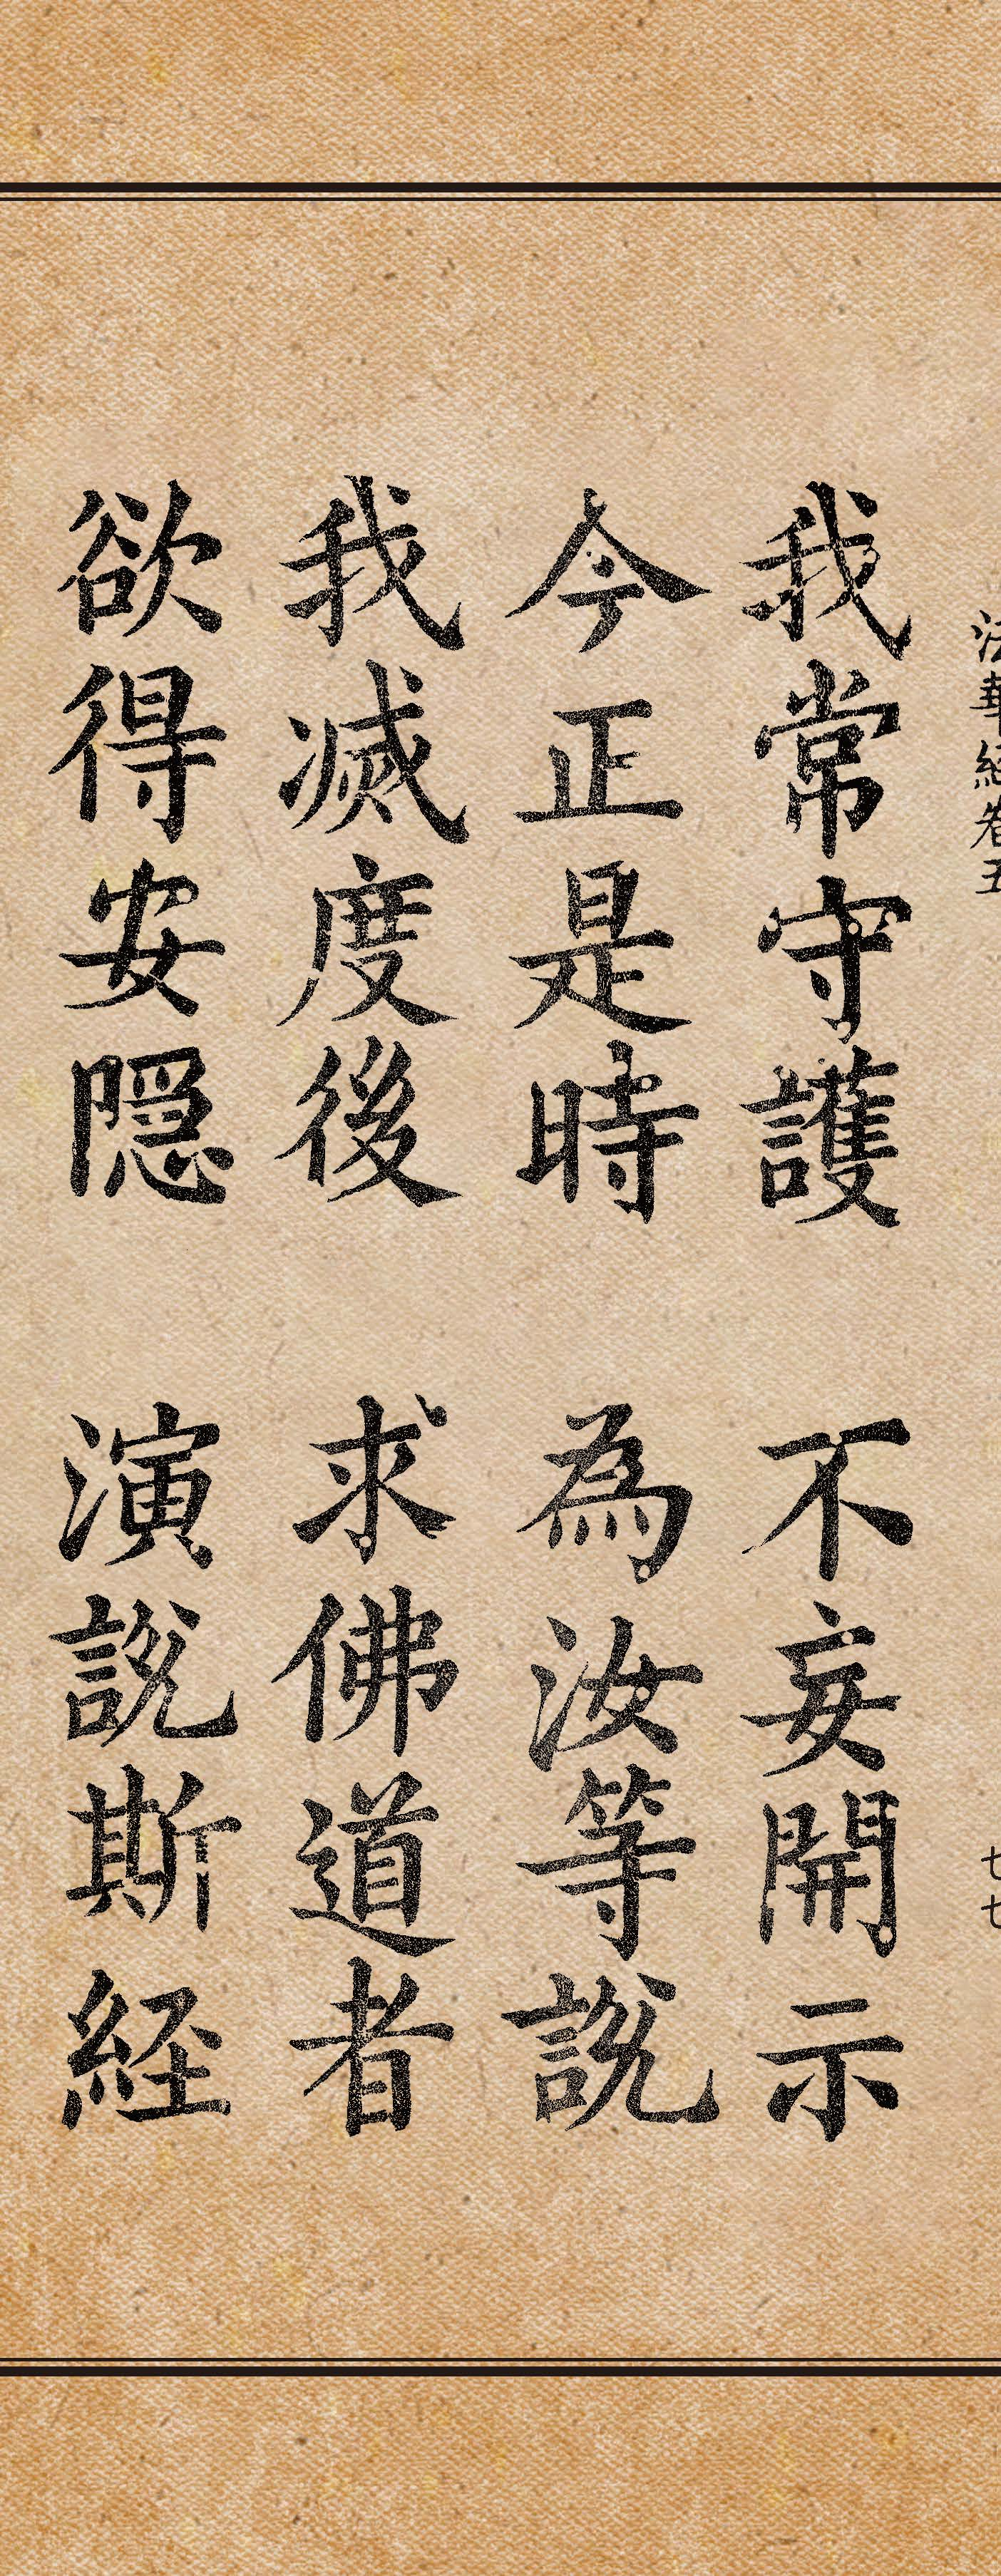 法華経巻五
七七
我常守護 不妄開示
今正是時 為汝等説
我滅度後 求佛道者
欲得安隠 演説斯経